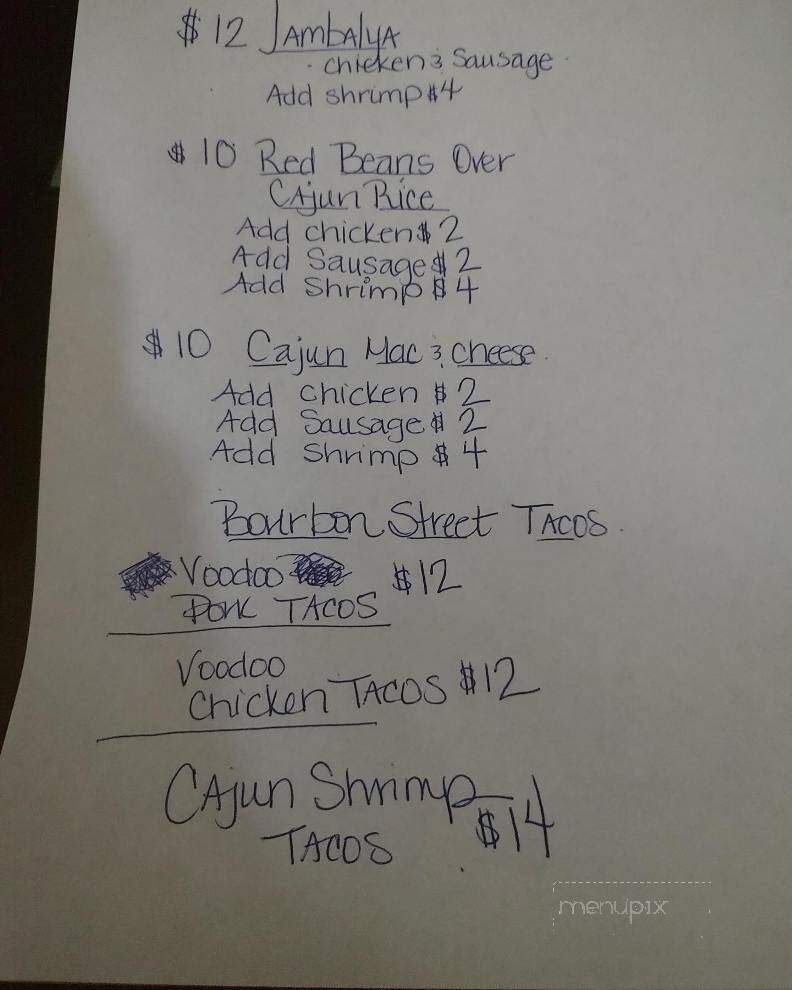 $12 JAmbAlyA
· chicken & Sausage ·
Add shrimp $4
$10 Red Beans Over
CAjun Rice
Add chicken $2
Add Sausage $2
Add Shrimp $4
$10 Cajun Mac & cheese.
Add chicken $2
Add Sausage $2
Add Shrimp $4
Bourbon Street TACOS.
Voodoo $12
Pork TACOS
Voodoo
Chicken TACOS $12
CAjun Shrimp
TACOS $14
menupix